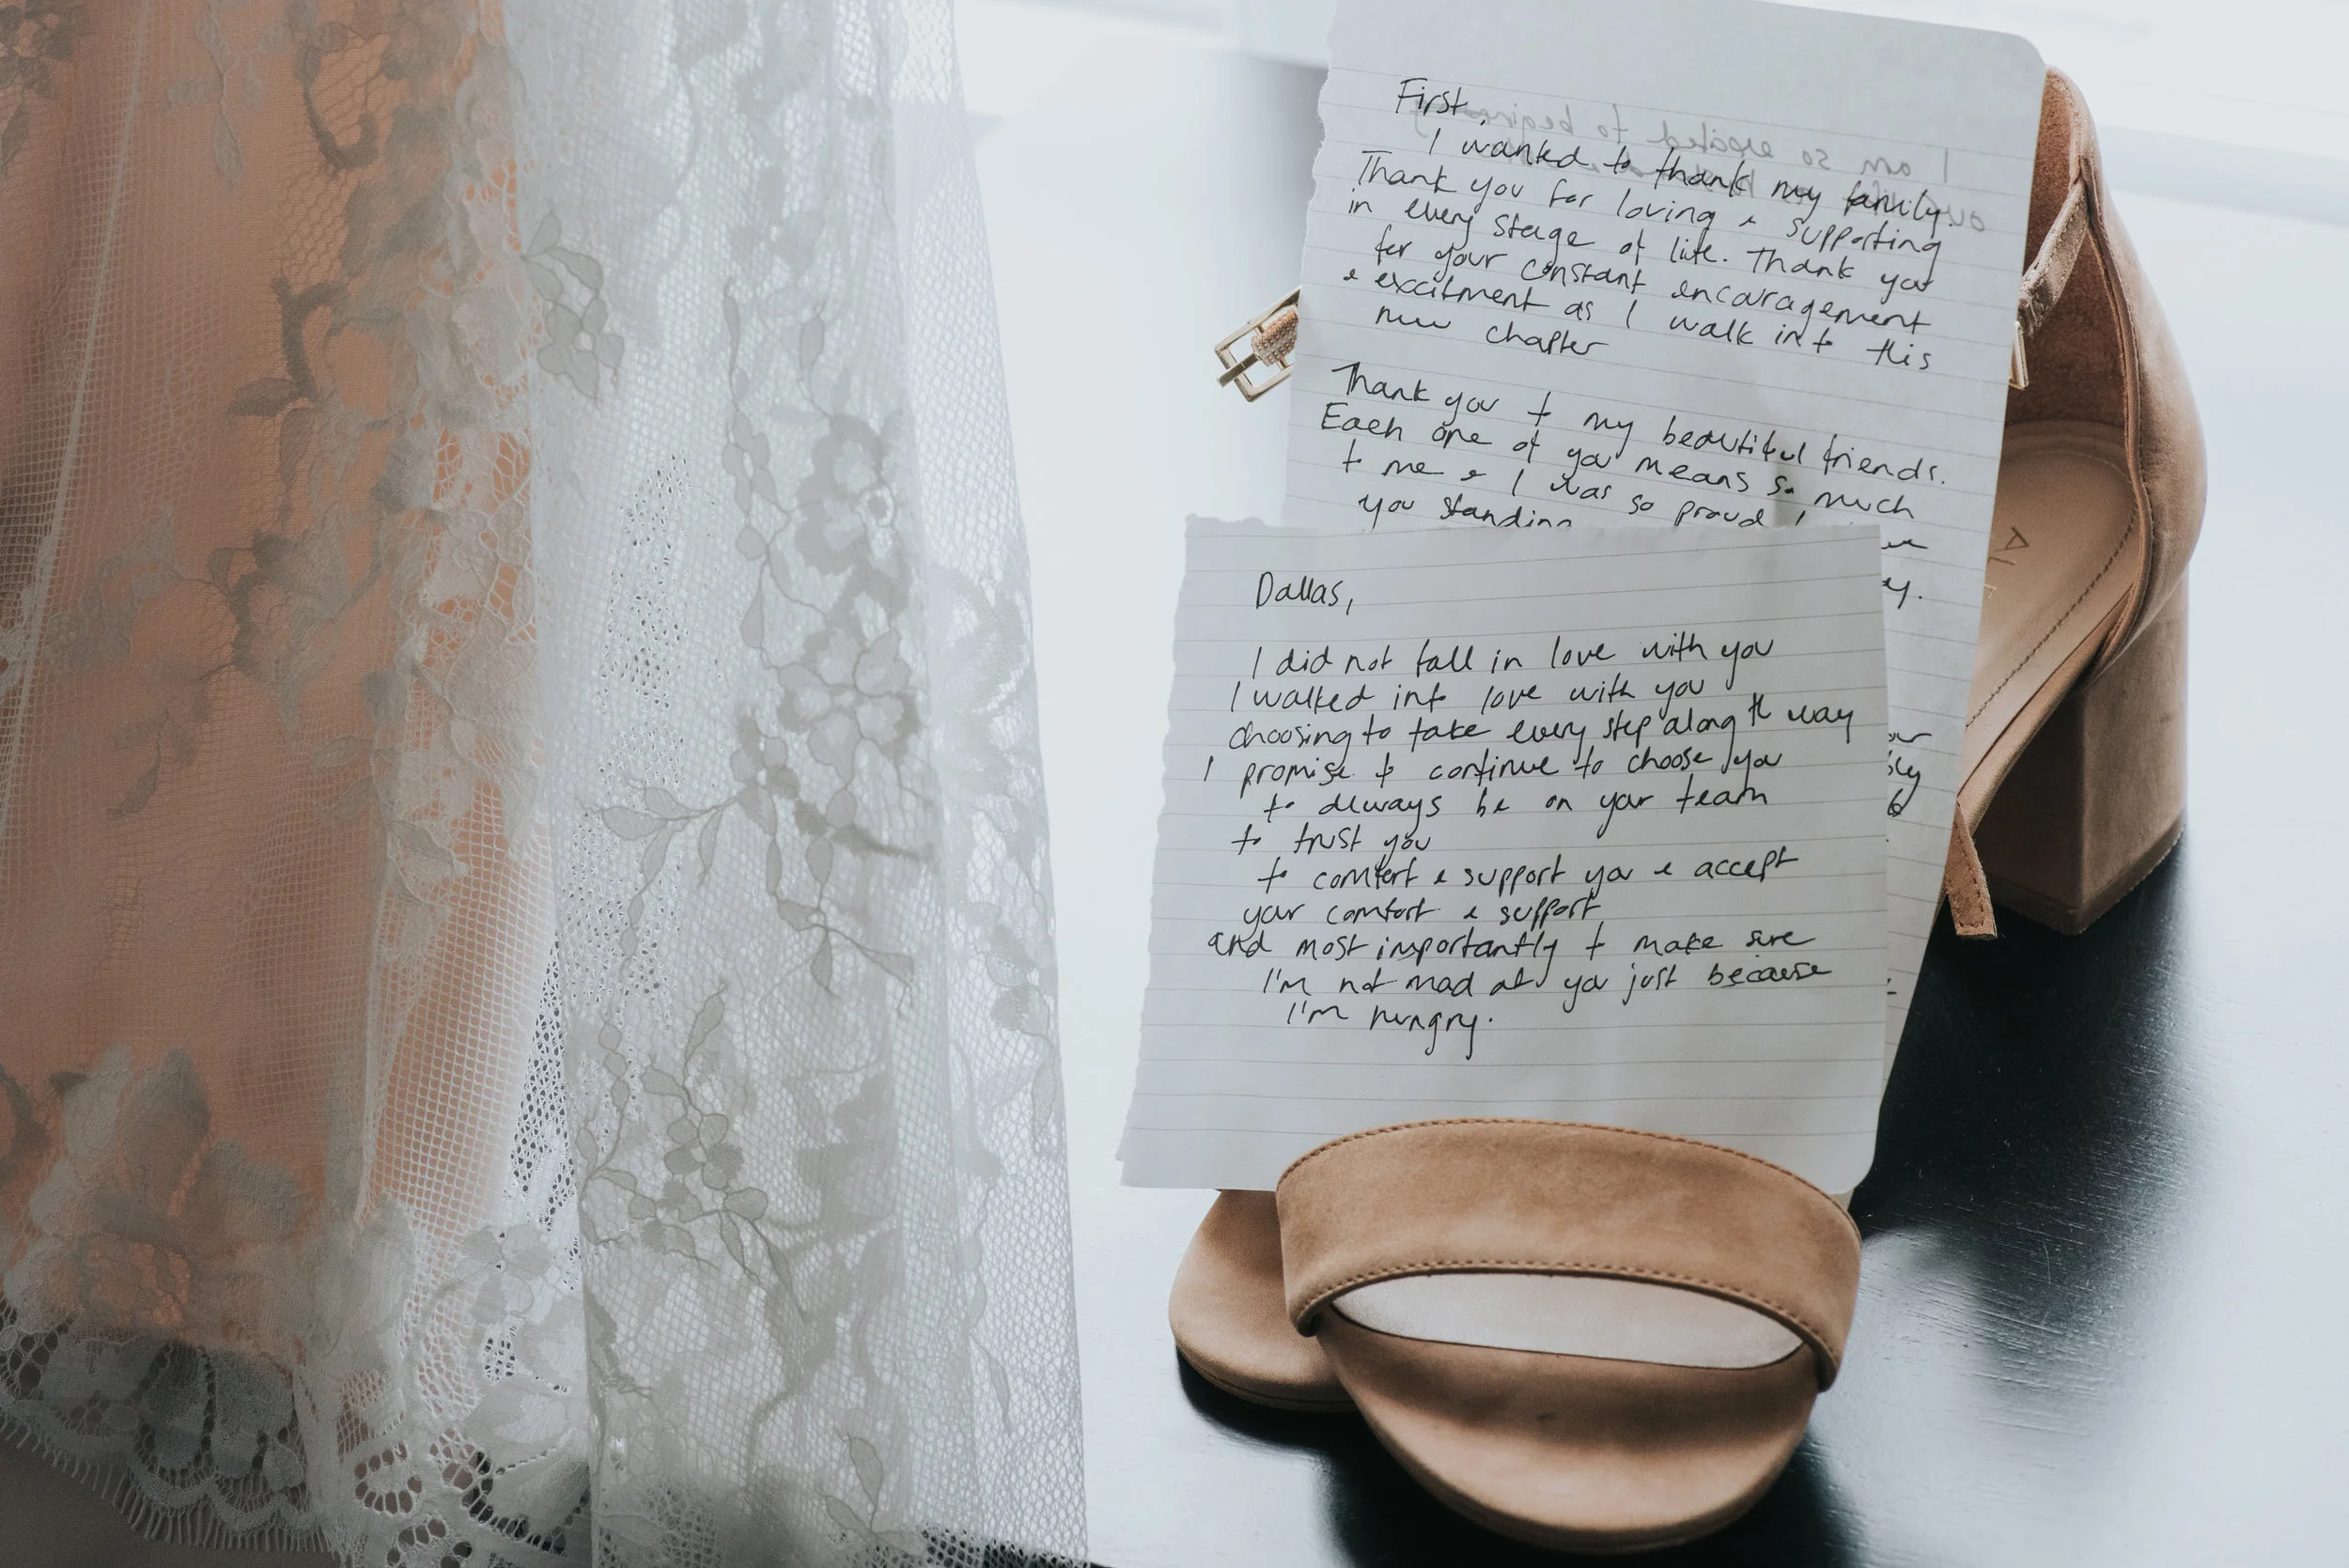 First,
I wanted to thank my family.
Thank you for loving & supporting
in every stage of life. Thank you
for your constant encouragement
& excitment as I walk into this
new chapter
Thank you to my beautiful friends.
Each one of you means so much
to me & I was so proud
you standing
Dallas,
I did not fall in love with you
I walked into love with you
choosing to take every step along the way
I promise to continue to choose you
to always be on your team
to trust you
to comfort & support you & accept
your comfort & support
and most importantly to make sure
I'm not mad at you just because
I'm hungry.
I am so excited to begin